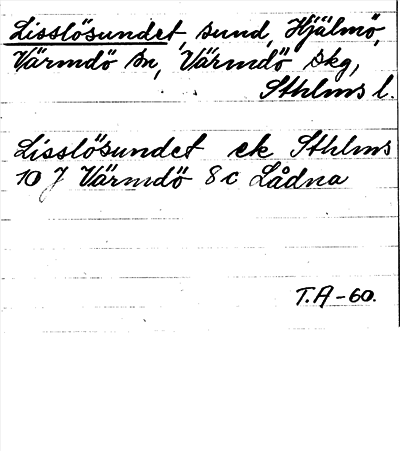 Lisslösundet, sund, Hjälmö,
Värmdö sn, Värmdö skg,
Sthlms l.
Lisslösundet ek Sthlms
10 J Värmdö 8 c Lådna
T.A-60.